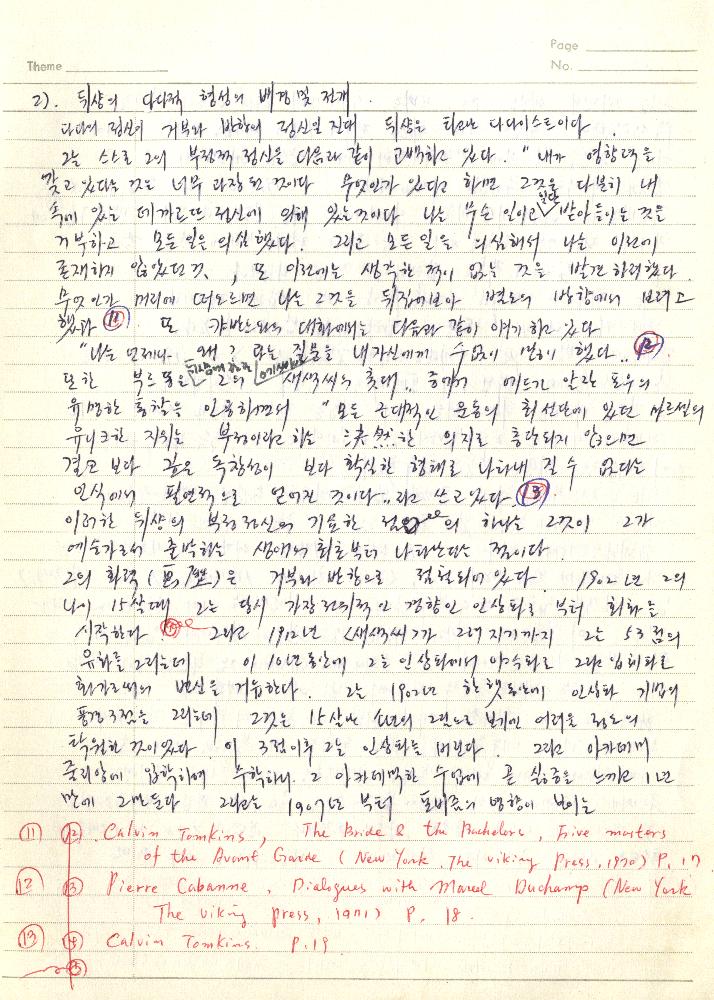 Page
Theme No.
2). 뒤샹의 다다적 형성의 배경 및 전개
다다의 정신이 거부와 반항의 정신일진대 뒤샹은 타고난 다다이스트이다.
그는 스스로 그의 부정적 정신을 다음과 같이 고백하고 있다. "내가 영향력을
갖고 있다는 것은 너무 과장된 것이다 무엇인가 있다고 하면 그것은 다분히 내
속에 있는 데까르뜨 정신에 의해 있는것이다 나는 무슨 일이고 일단 받아들이는 것을
거부하고 모든 일을 의심했다. 그리고 모든 일을 의심해서 나는 이전에
존재하지 않았던 것, 또 이전에는 생각한 적이 없는 것을 발견하려했다.
무엇인가 머리에 떠오르면 나는 그것을 뒤집어보아 별도의 방향에서 보려고
했다 (11) 또 캬반느와의 대화에서는 다음과 같이 얘기하고 있다
"나는 언제나 왜? 라는 질문을 내자신에게 수없이 했다.. (12)
또한 부르통은 그의 에세이 새색씨의 촛대.. 중에서 에드가 알란 포우의
유명한 통찰을 인용하면서 "모든 근대적인 운동의 최선단에 있던 마르셀의
유니크한 지위는 부정이라고 하는 決然한 의지로 충당되지 않으면
결코 보다 깊은 독창성이 보다 확실한 형태로 나타내 질 수 없다는
인식에서 필연적으로 얻어진 것이다..라고 쓰고있다. (13)
이러한 뒤샹의 부정정신의 기묘한 점의 하나는 그것이 그가
예술가로서 출발하는 생애의 최초부터 나타난다는 점이다
그의 화력(畵歷)은 거부와 반항으로 점철되어 있다. 1902년 그의
나이 15살때 그는 당시 가장 전위적인 경향인 인상파로 부터 회화를
시작한다. 그리고 1912년 <새색씨>가 그려지기까지 그는 53점의
유화를 그리는데 이 10년동안에 그는 인상파에서 야수파로 그리고 입체파로
화가로써의 변신을 거듭한다. 그는 1902년 한햇동안에 인상파 기법의
풍경 3점을 그리는데 그것은 15살난 소년의 그림으로 보기엔 어려울 정도의
탁월한 것이었다. 이 3점이후 그는 인상파를 버린다. 그리고 아카데미
쥴리앙에 입학하여 수학하나 그 아카데믹한 수업에 곧 싫증을 느끼고 1년
만에 그만둔다 그리고는 1907년 부터 포비즘의 영향이 보이는
(11) (12). Calvin Tomkins, The Bride & the Bachelors, Five masters
of the Avant Garde (New York. The viking Press, 1970) P. 17
(12) (13) Pierre Cabanne, Dialogues with Marcel Duchamp (New York
The viking press, 1971) P. 18.
(13) (14) Calvin Tomkins. P. 19
(15)